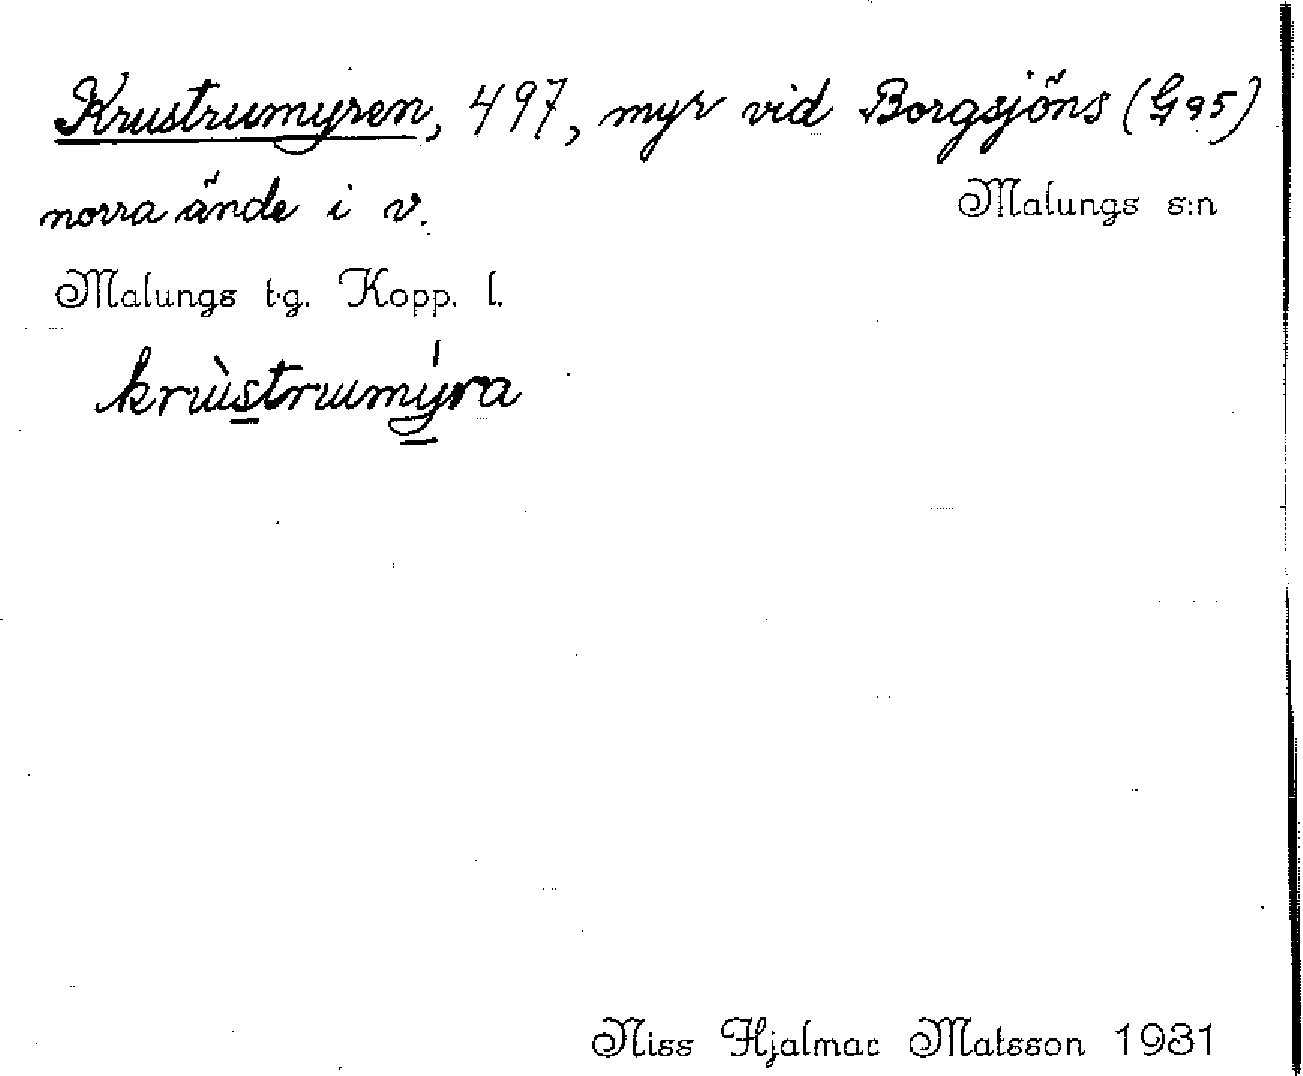 Krustrumyren, 497, myr vid Borgsjöns (G 95)
norra ände i v.
Malungs s:n
Malungs t.g. Kopp. l.
krùstrumýra
Niss Hjalmar Matsson 1931